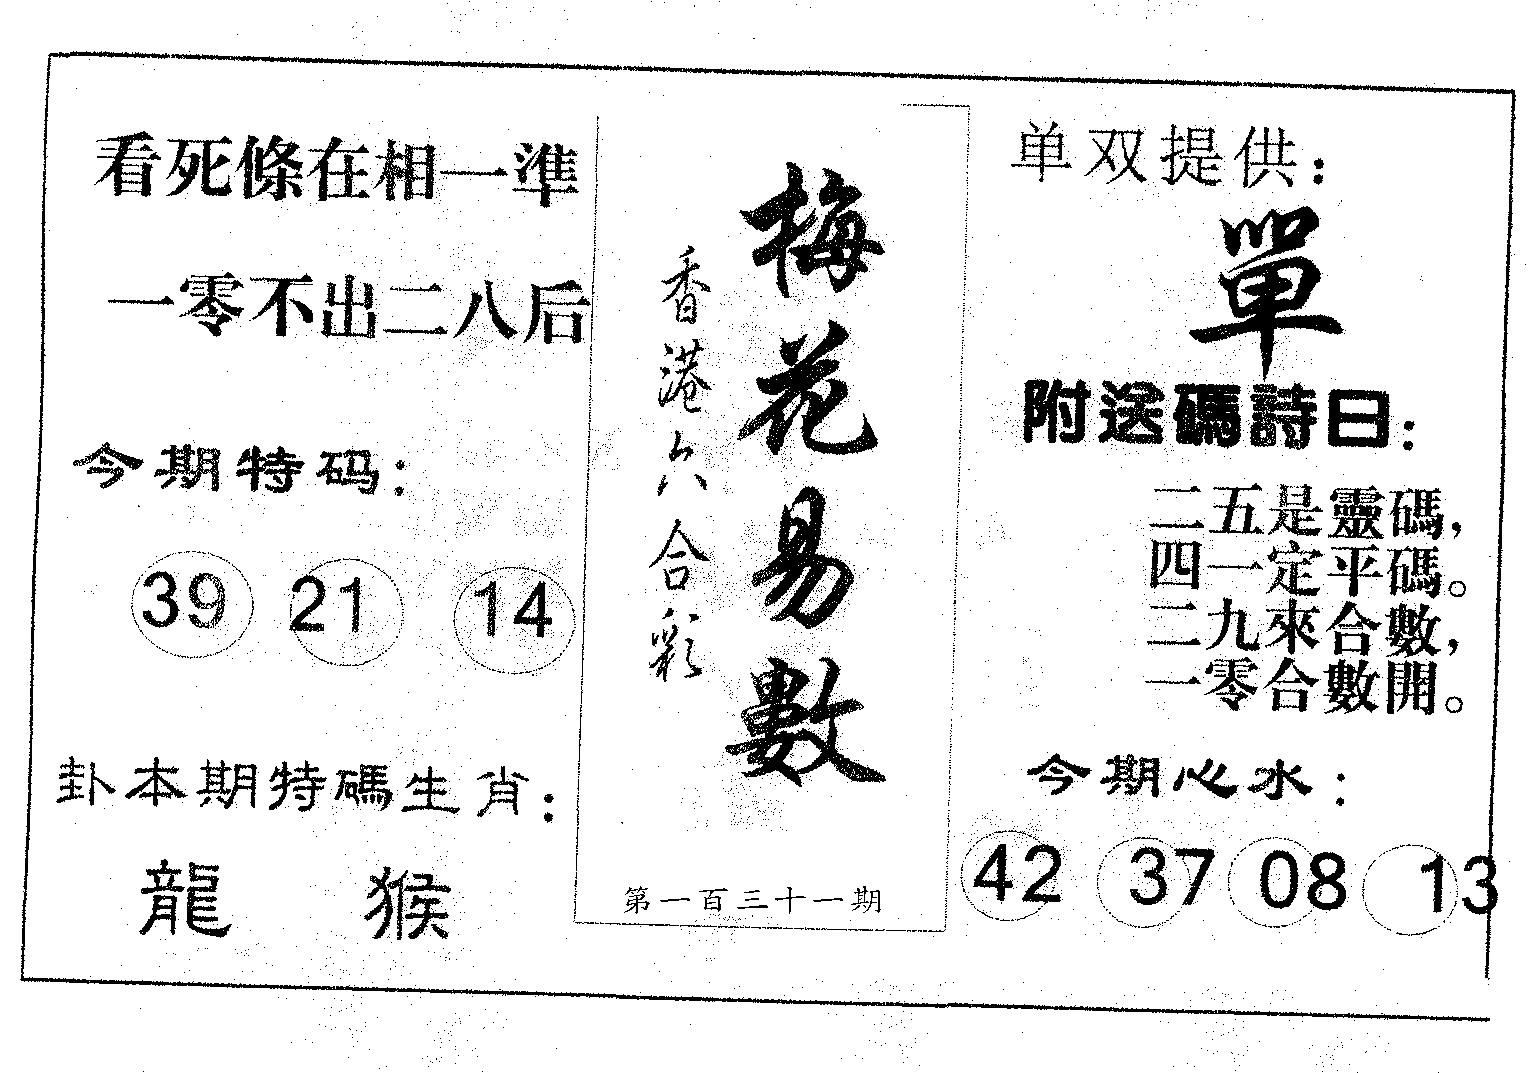 看死條在相一準
一零不出二八后
今期特码：
39 21 14
卦本期特碼生肖：
龍 猴
梅花易數
香港六合彩
第一百三十一期
单双提供：
單
附送碼詩曰：
二五是靈碼，
四一定平碼。
二九來合數，
一零合數開。
今期心水：
42 37 08 13